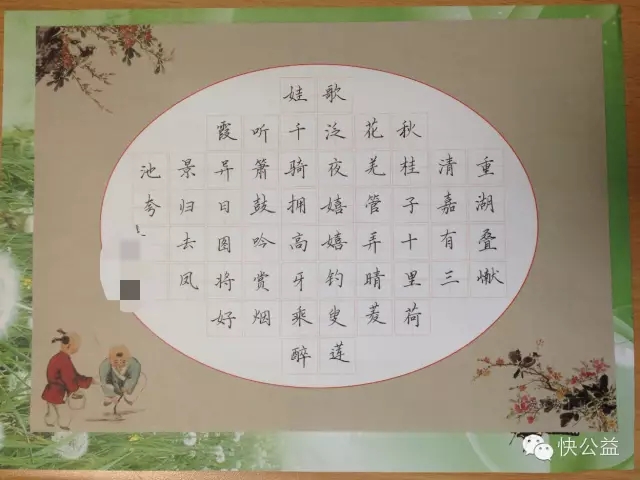 重湖叠巘
清嘉有三
秋桂子十里荷
花羌管弄晴菱
歌泛夜嬉嬉钓叟莲
娃千骑拥高牙乘醉
听箫鼓吟赏烟
霞异日图将好
景归去凤
池夸
快公益